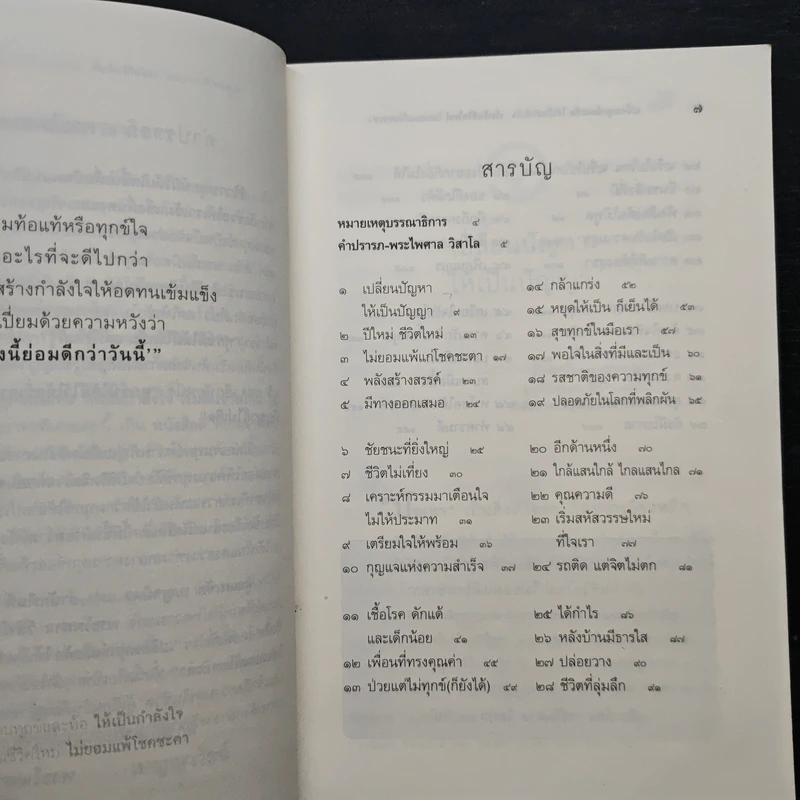 มท้อแท้หรือทุกข์ใจ
อะไรที่จะดีไปกว่า
สร้างกำลังใจให้อดทนเข้มแข็ง
เปี่ยมด้วยความหวังว่า
งนี้ย่อมดีกว่าวันนี้'"
ให้เป็นกำลังใจ
ชีวิตใหม่ ไม่ยอมแพ้โชคชะตา
๗
สารบัญ
หมายเหตุบรรณาธิการ ๔
คำปรารภ-พระไพศาล วิสาโล ๕
๑ เปลี่ยนปัญหา
ให้เป็นปัญญา ๙
๒ ปีใหม่ ชีวิตใหม่ ๑๓
๓ ไม่ยอมแพ้แก่โชคชะตา ๑๗
๔ พลังสร้างสรรค์ ๒๓
๕ มีทางออกเสมอ ๒๔
๖ ชัยชนะที่ยิ่งใหญ่ ๒๕
๗ ชีวิตไม่เที่ยง ๓๐
๘ เคราะห์กรรมมาเตือนใจ
ไม่ให้ประมาท ๓๑
๙ เตรียมใจให้พร้อม ๓๖
๑๐ กุญแจแห่งความสำเร็จ ๓๗
๑๑ เชื้อโรค ดักแด้
และเด็กน้อย ๔๑
๑๒ เพื่อนที่ทรงคุณค่า ๔๕
๑๓ ป่วยแต่ไม่ทุกข์(ก็ยังได้) ๔๙
๑๔ กล้าแกร่ง ๕๒
๑๕ หยุดให้เป็น ก็เย็นได้ ๕๓
๑๖ สุขทุกข์ในมือเรา ๕๗
๑๗ พอใจในสิ่งที่มีและเป็น ๖๐
๑๘ รสชาติของความทุกข์ ๖๑
๑๙ ปลอดภัยในโลกที่พลิกผัน ๖๕
๒๐ อีกด้านหนึ่ง ๗๐
๒๑ ใกล้แสนใกล้ ไกลแสนไกล ๗๑
๒๒ คุณความดี ๗๖
๒๓ เริ่มสหัสวรรษใหม่
ที่ใจเรา ๗๗
๒๔ รถติด แต่จิตไม่ตก ๘๑
๒๕ ได้กำไร ๘๖
๒๖ หลังบ้านมีธารใส ๘๗
๒๗ ปล่อยวาง ๙๐
๒๘ ชีวิตที่ลุ่มลึก ๙๑